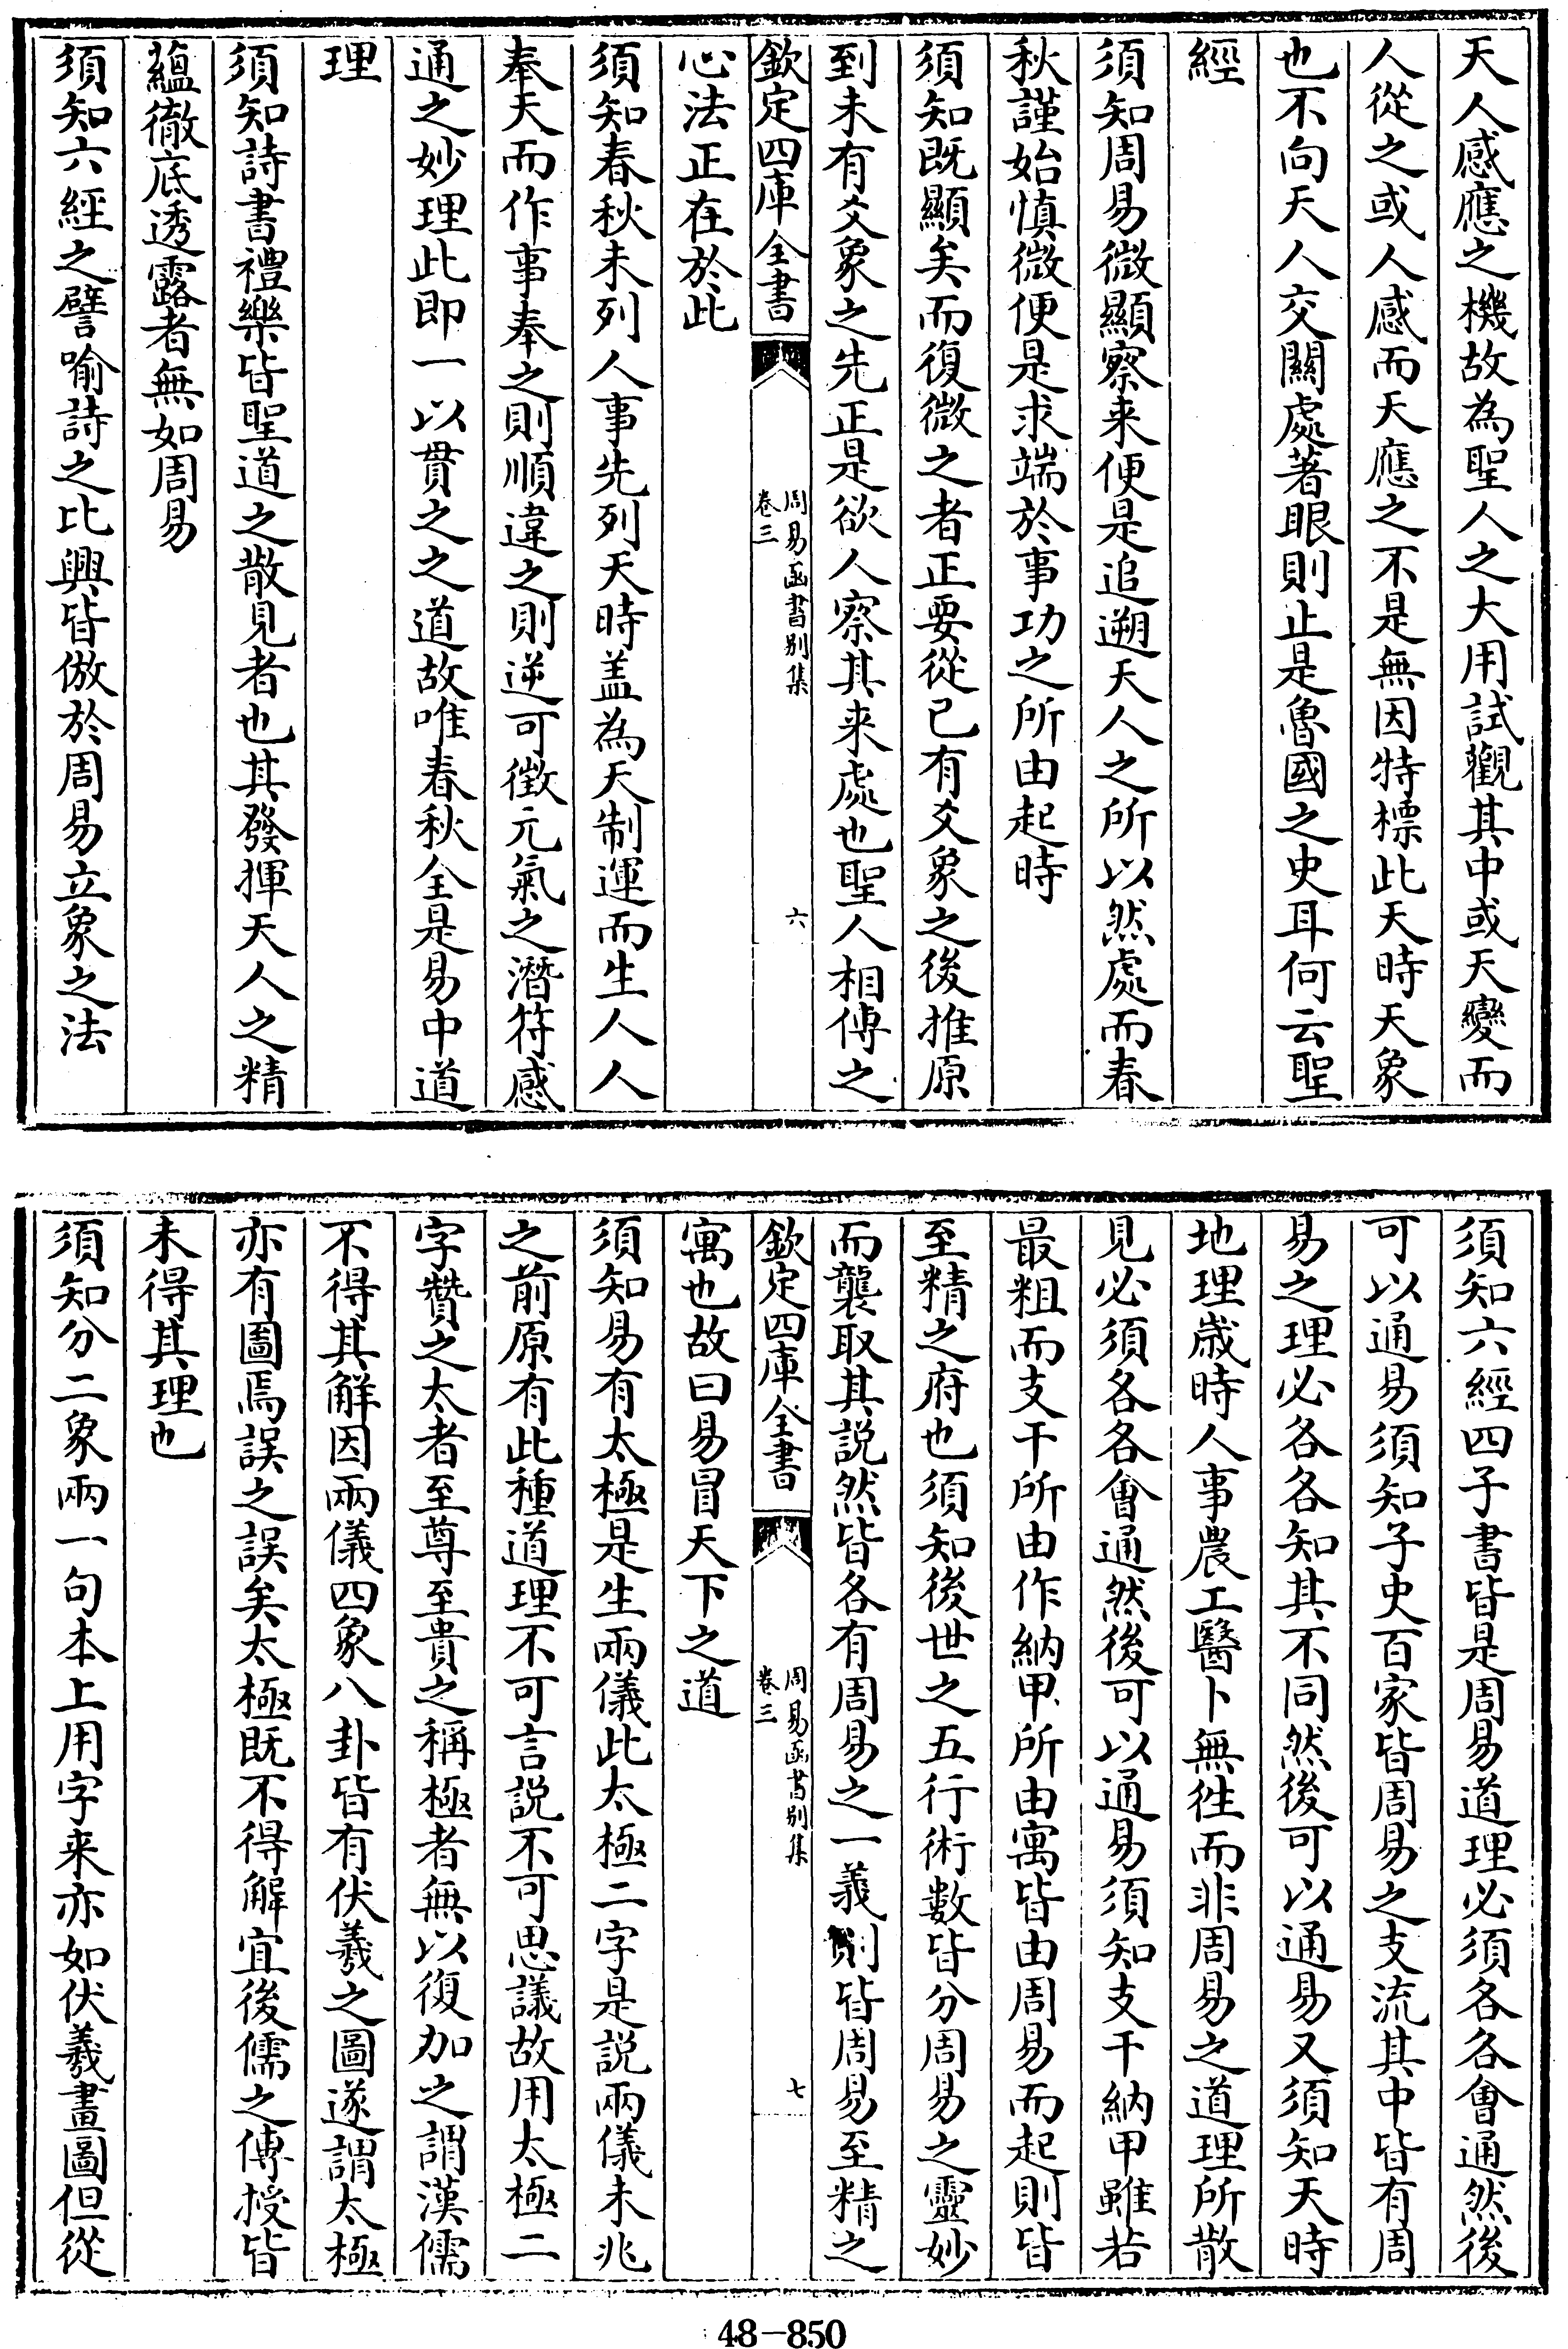 天人感應之機故為聖人之大用試觀其中或天變而
人從之或人感而天應之不是無因特標此天時天象
也不向天人交關處著眼則止是魯國之史耳何云聖
經
須知周易微顯察来便是追遡天人之所以然處而春
秋謹始慎微便是求端於事功之所由起時
須知既顯矣而復微之者正要從已有爻象之後推原
到未有爻象之先正是欲人察其来處也聖人相傳之
欽定四庫全書
周易函書別集
卷三
六
心法正在於此
須知春秋未列人事先列天時盖為天制運而生人人
奉天而作事奉之則順違之則逆可徵元氣之潛符感
通之妙理此即一以貫之之道故唯春秋全是易中道
理
須知詩書禮樂皆聖道之散見者也其發揮天人之精
蘊徹底透露者無如周易
須知六經之譬喻詩之比興皆倣於周易立象之法
須知六經四子書皆是周易道理必須各各會通然後
可以通易須知子史百家皆周易之支流其中皆有周
易之理必各各知其不同然後可以通易又須知天時
地理歲時人事農工醫卜無徃而非周易之道理所散
見必須各各會通然後可以通易須知支干納甲雖若
最粗而支干所由作納甲所由寓皆由周易而起則皆
至精之府也須知後世之五行術數皆分周易之靈妙
而襲取其説然皆各有周易之一義則皆周易至精之
欽定四庫全書
周易函書別集
卷三
七
寓也故曰易冒天下之道
須知易有太極是生兩儀此太極二字是説兩儀未兆
之前原有此種道理不可言説不可思議故用太極二
字贊之太者至尊至貴之稱極者無以復加之謂漢儒
不得其解因兩儀四象八卦皆有伏羲之圖遂謂太極
亦有圖焉誤之誤矣太極既不得解宜後儒之傳授皆
未得其理也
須知分二象兩一句本上用字来亦如伏羲畫圖但從
48-850